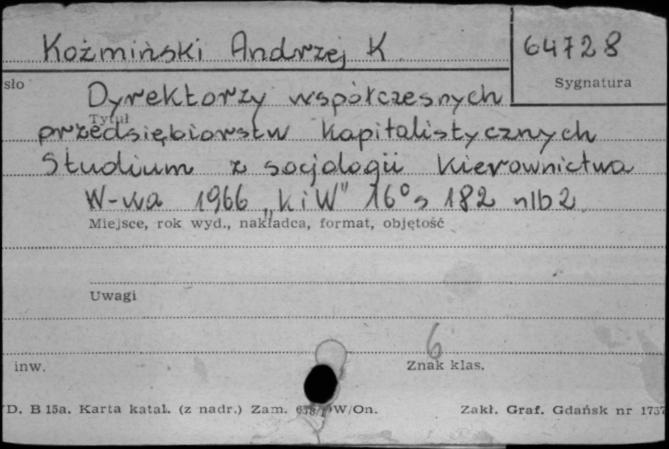 Koźmiński Andrzej K
64728
sło
Sygnatura
Dyrektorzy współczesnych
Tytuł
przedsiębiorstw kapitalistycznych
Studium z socjologii kierownictwa
W-wa 1966 „KiW" 16° s 182 nlb 2
Miejsce, rok wyd., nakładca, format, objętość
Uwagi
6
inw.
Znak klas.
D. B 15a. Karta katal. (z nadr.) Zam. W/On.
Zakł. Graf. Gdańsk nr 1737